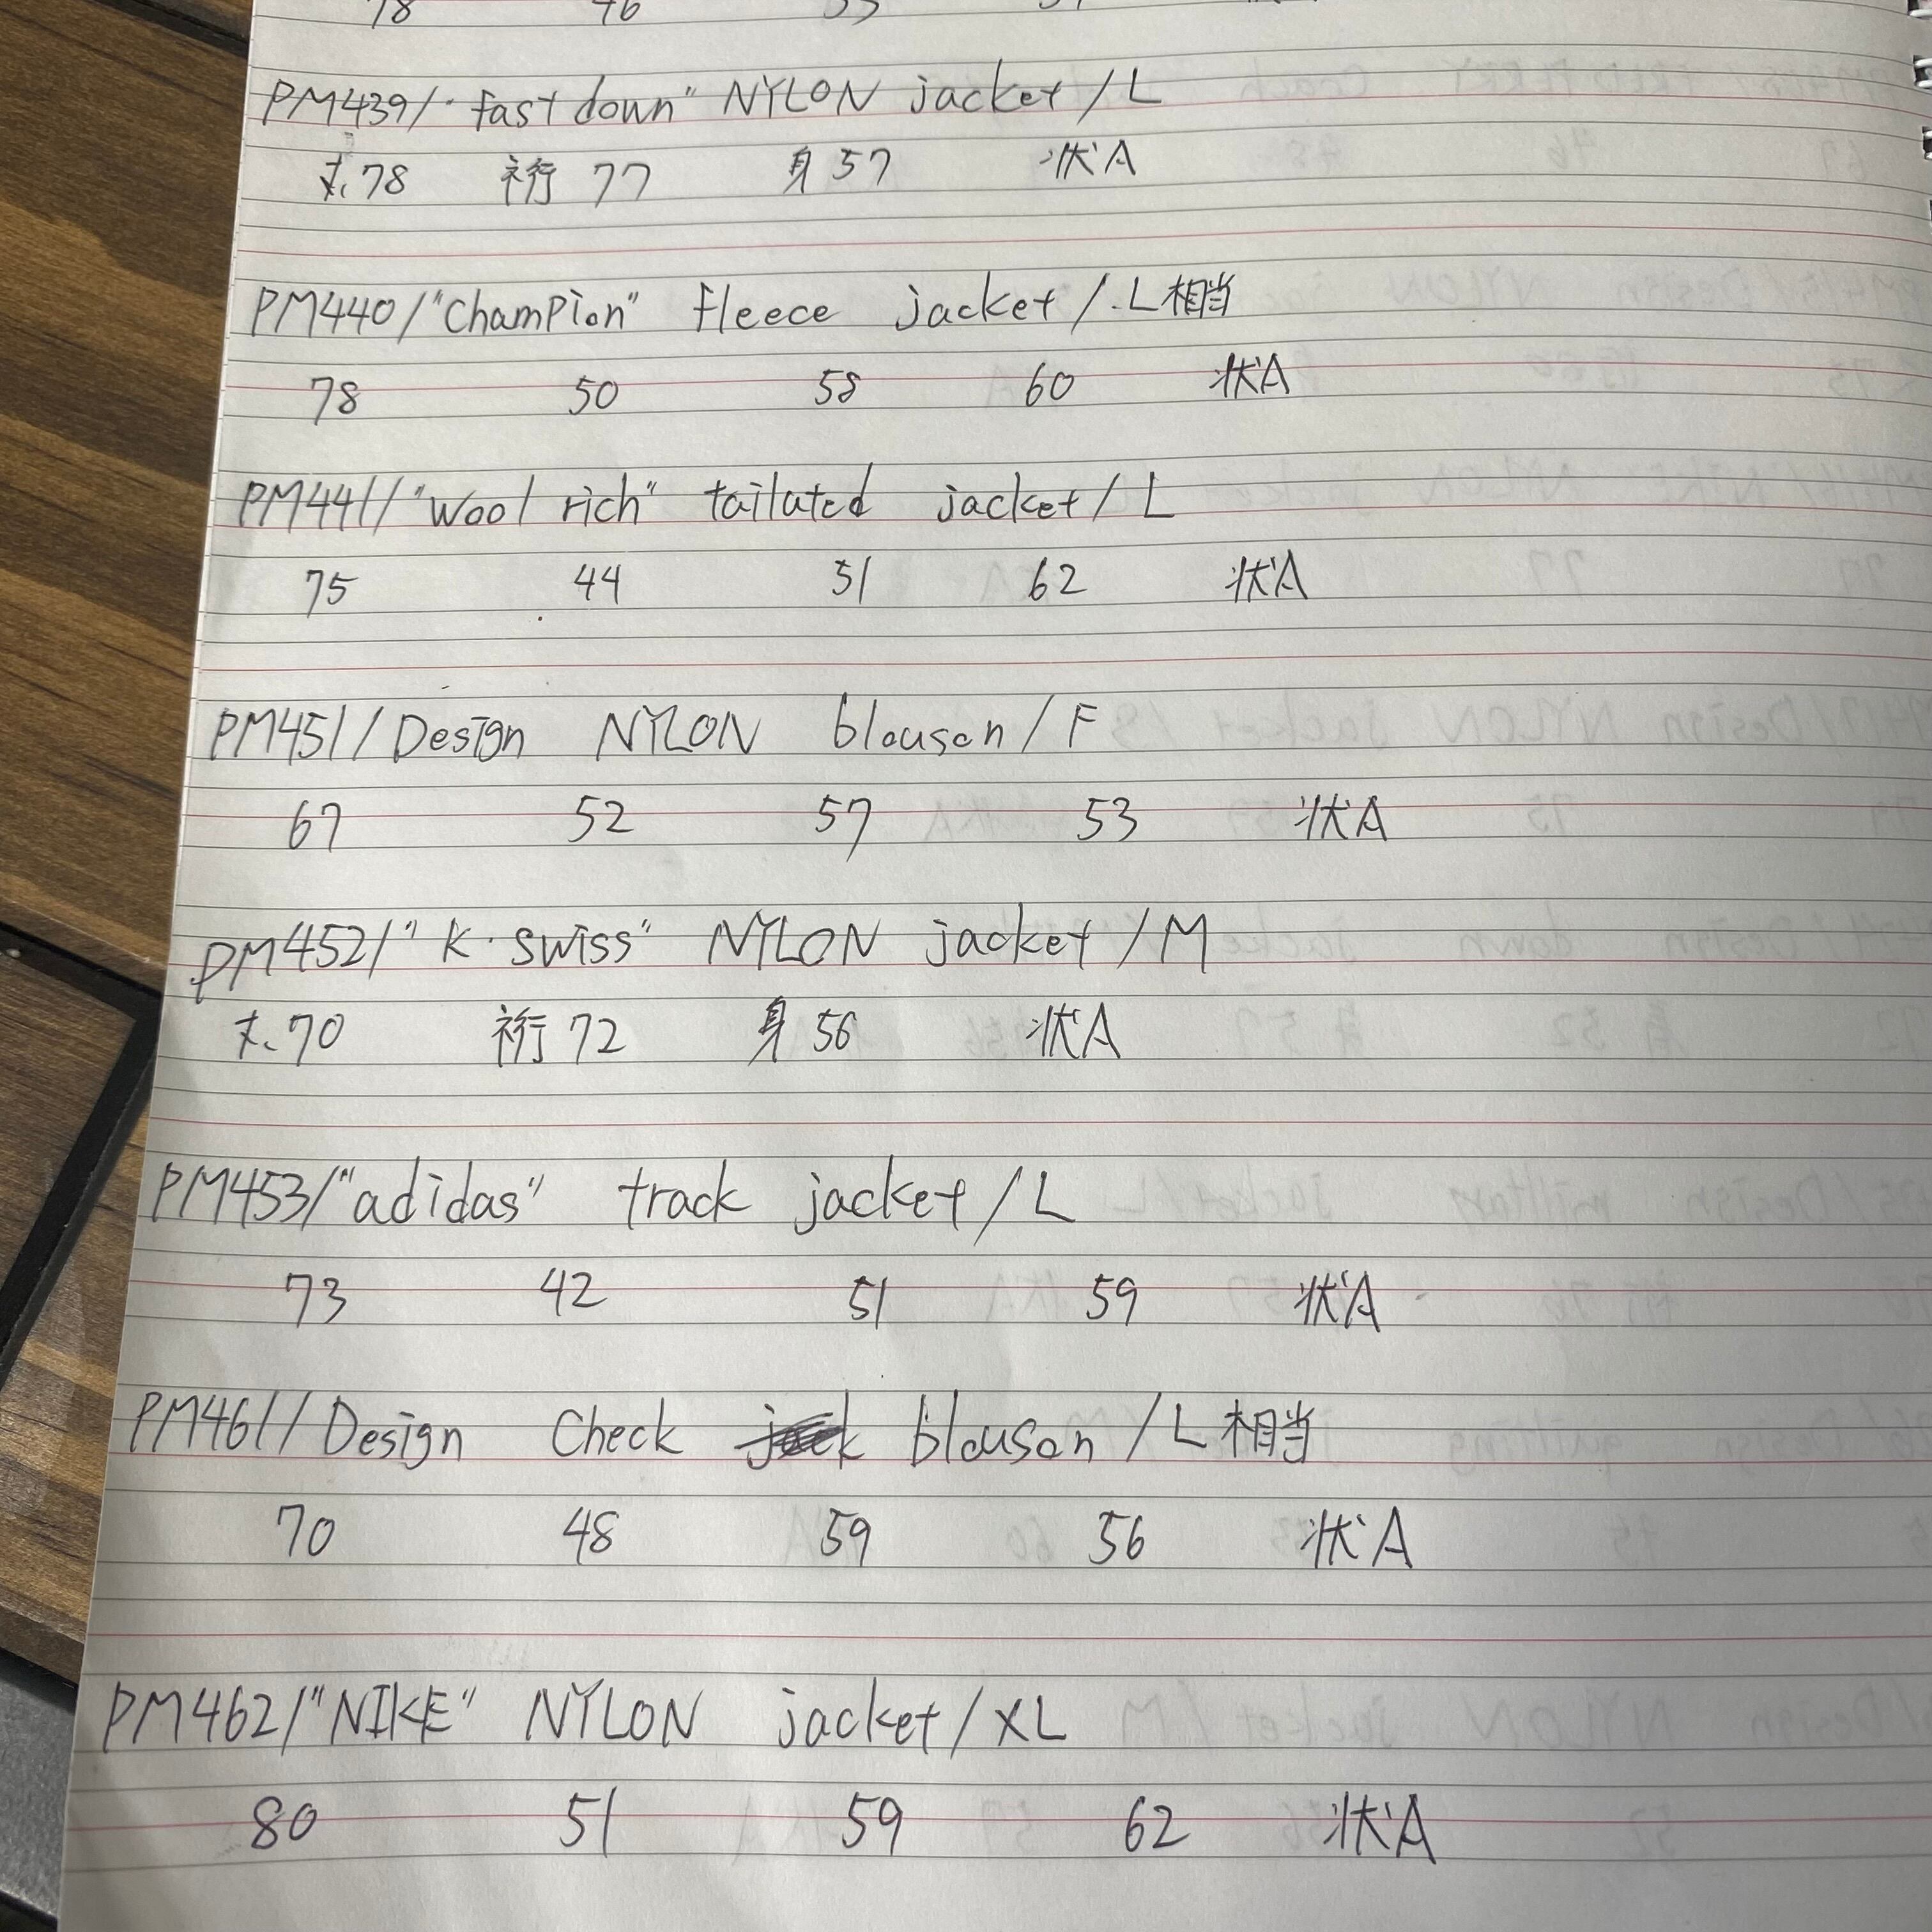 78 46 53
PM439/"fast down" NYLON jacket/L
丈78 裄77 身57 状A
PM440/"Champion" fleece jacket/L相当
78 50 58 60 状A
PM441/"Wool rich" tailated jacket/L
75 44 51 62 状A
PM451/Design NYLON blouson/F
67 52 57 53 状A
PM452/"K・Swiss" NYLON jacket/M
丈70 裄72 身56 状A
PM453/"adidas" track jacket/L
73 42 51 59 状A
PM461/Design Check blouson/L相当
70 48 59 56 状A
PM462/"NIKE" NYLON jacket/XL
80 51 59 62 状A